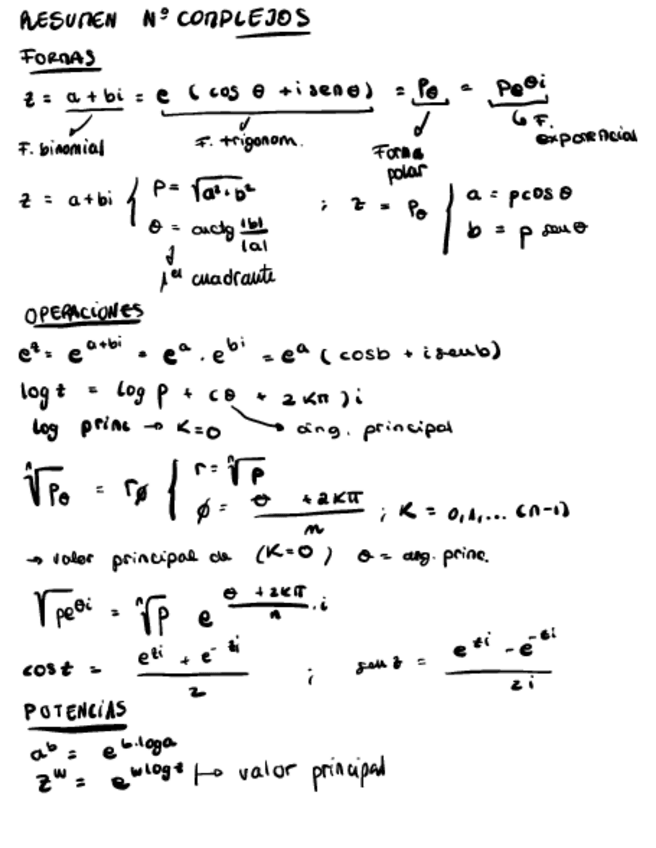 RESUMEN Nº COMPLEJOS
FORMAS
z = a + bi = ρ (cos θ + i sen θ) = ρ_θ = ρe^{θi}
F. binomial
F. trigonom.
Forma polar
F. exponencial
z = a+bi { ρ = √(a²+b²) ; z = ρ_θ { a = ρ cos θ
θ = arctg |b|/|a| b = ρ sen θ
1er cuadrante
OPERACIONES
e^z = e^{a+bi} = e^a · e^{bi} = e^a (cosb + i senb)
log z = log ρ + (θ + 2kπ)i
log princ → K=0 áng. principal
ⁿ√ρ_θ = r_φ { r = ⁿ√ρ
φ = (θ + 2kπ)/n ; K = 0,1,... (n-1)
→ valor principal de (K=0) θ = arg. princ.
√ρe^{θi} = ⁿ√ρ e^{(θ + 2kπ)/n · i}
cos z = (e^{zi} + e^{-zi})/2 ; sen z = (e^{zi} - e^{-zi})/2i
POTENCIAS
a^b = e^{b·loga}
z^w = e^{w log z} ↦ valor principal